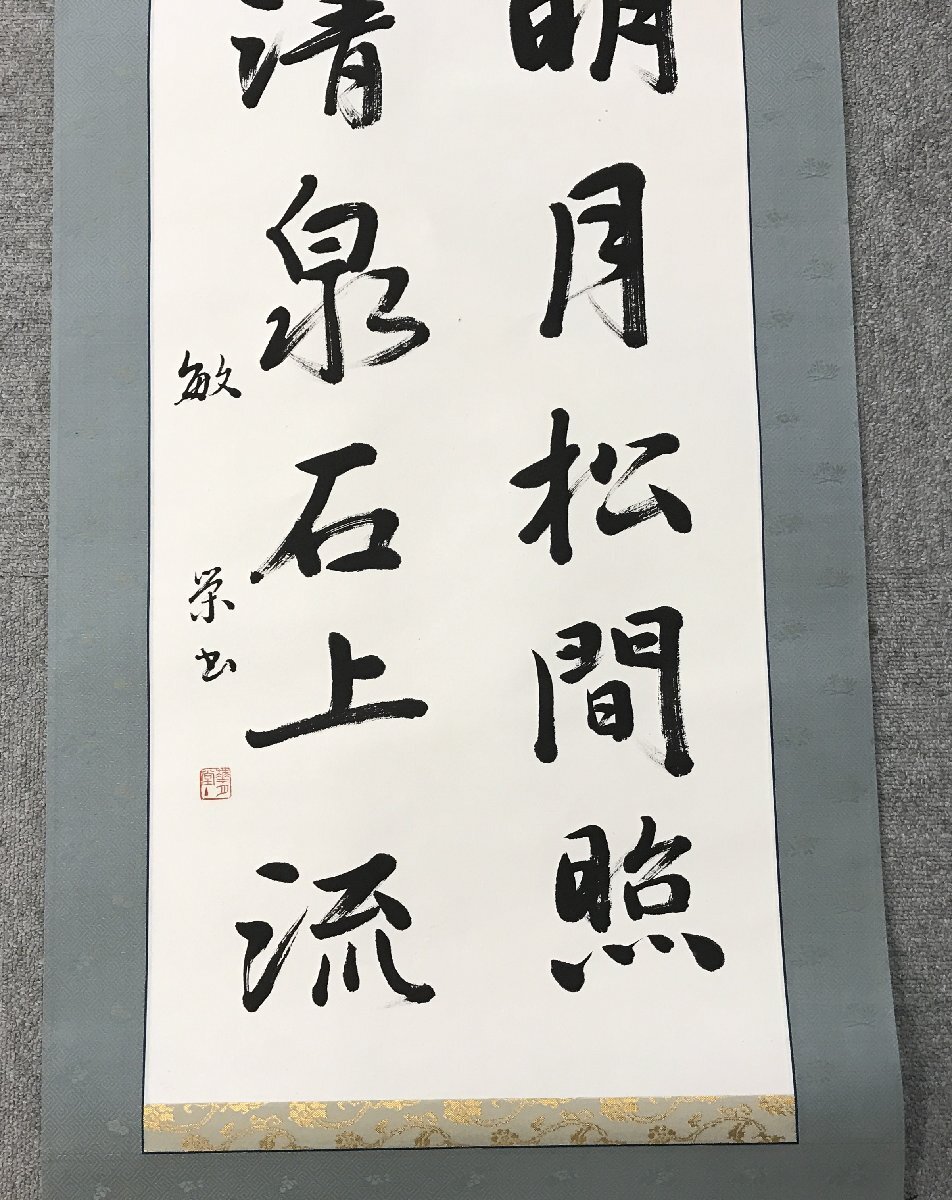 明月松間照
清泉石上流
敏榮书